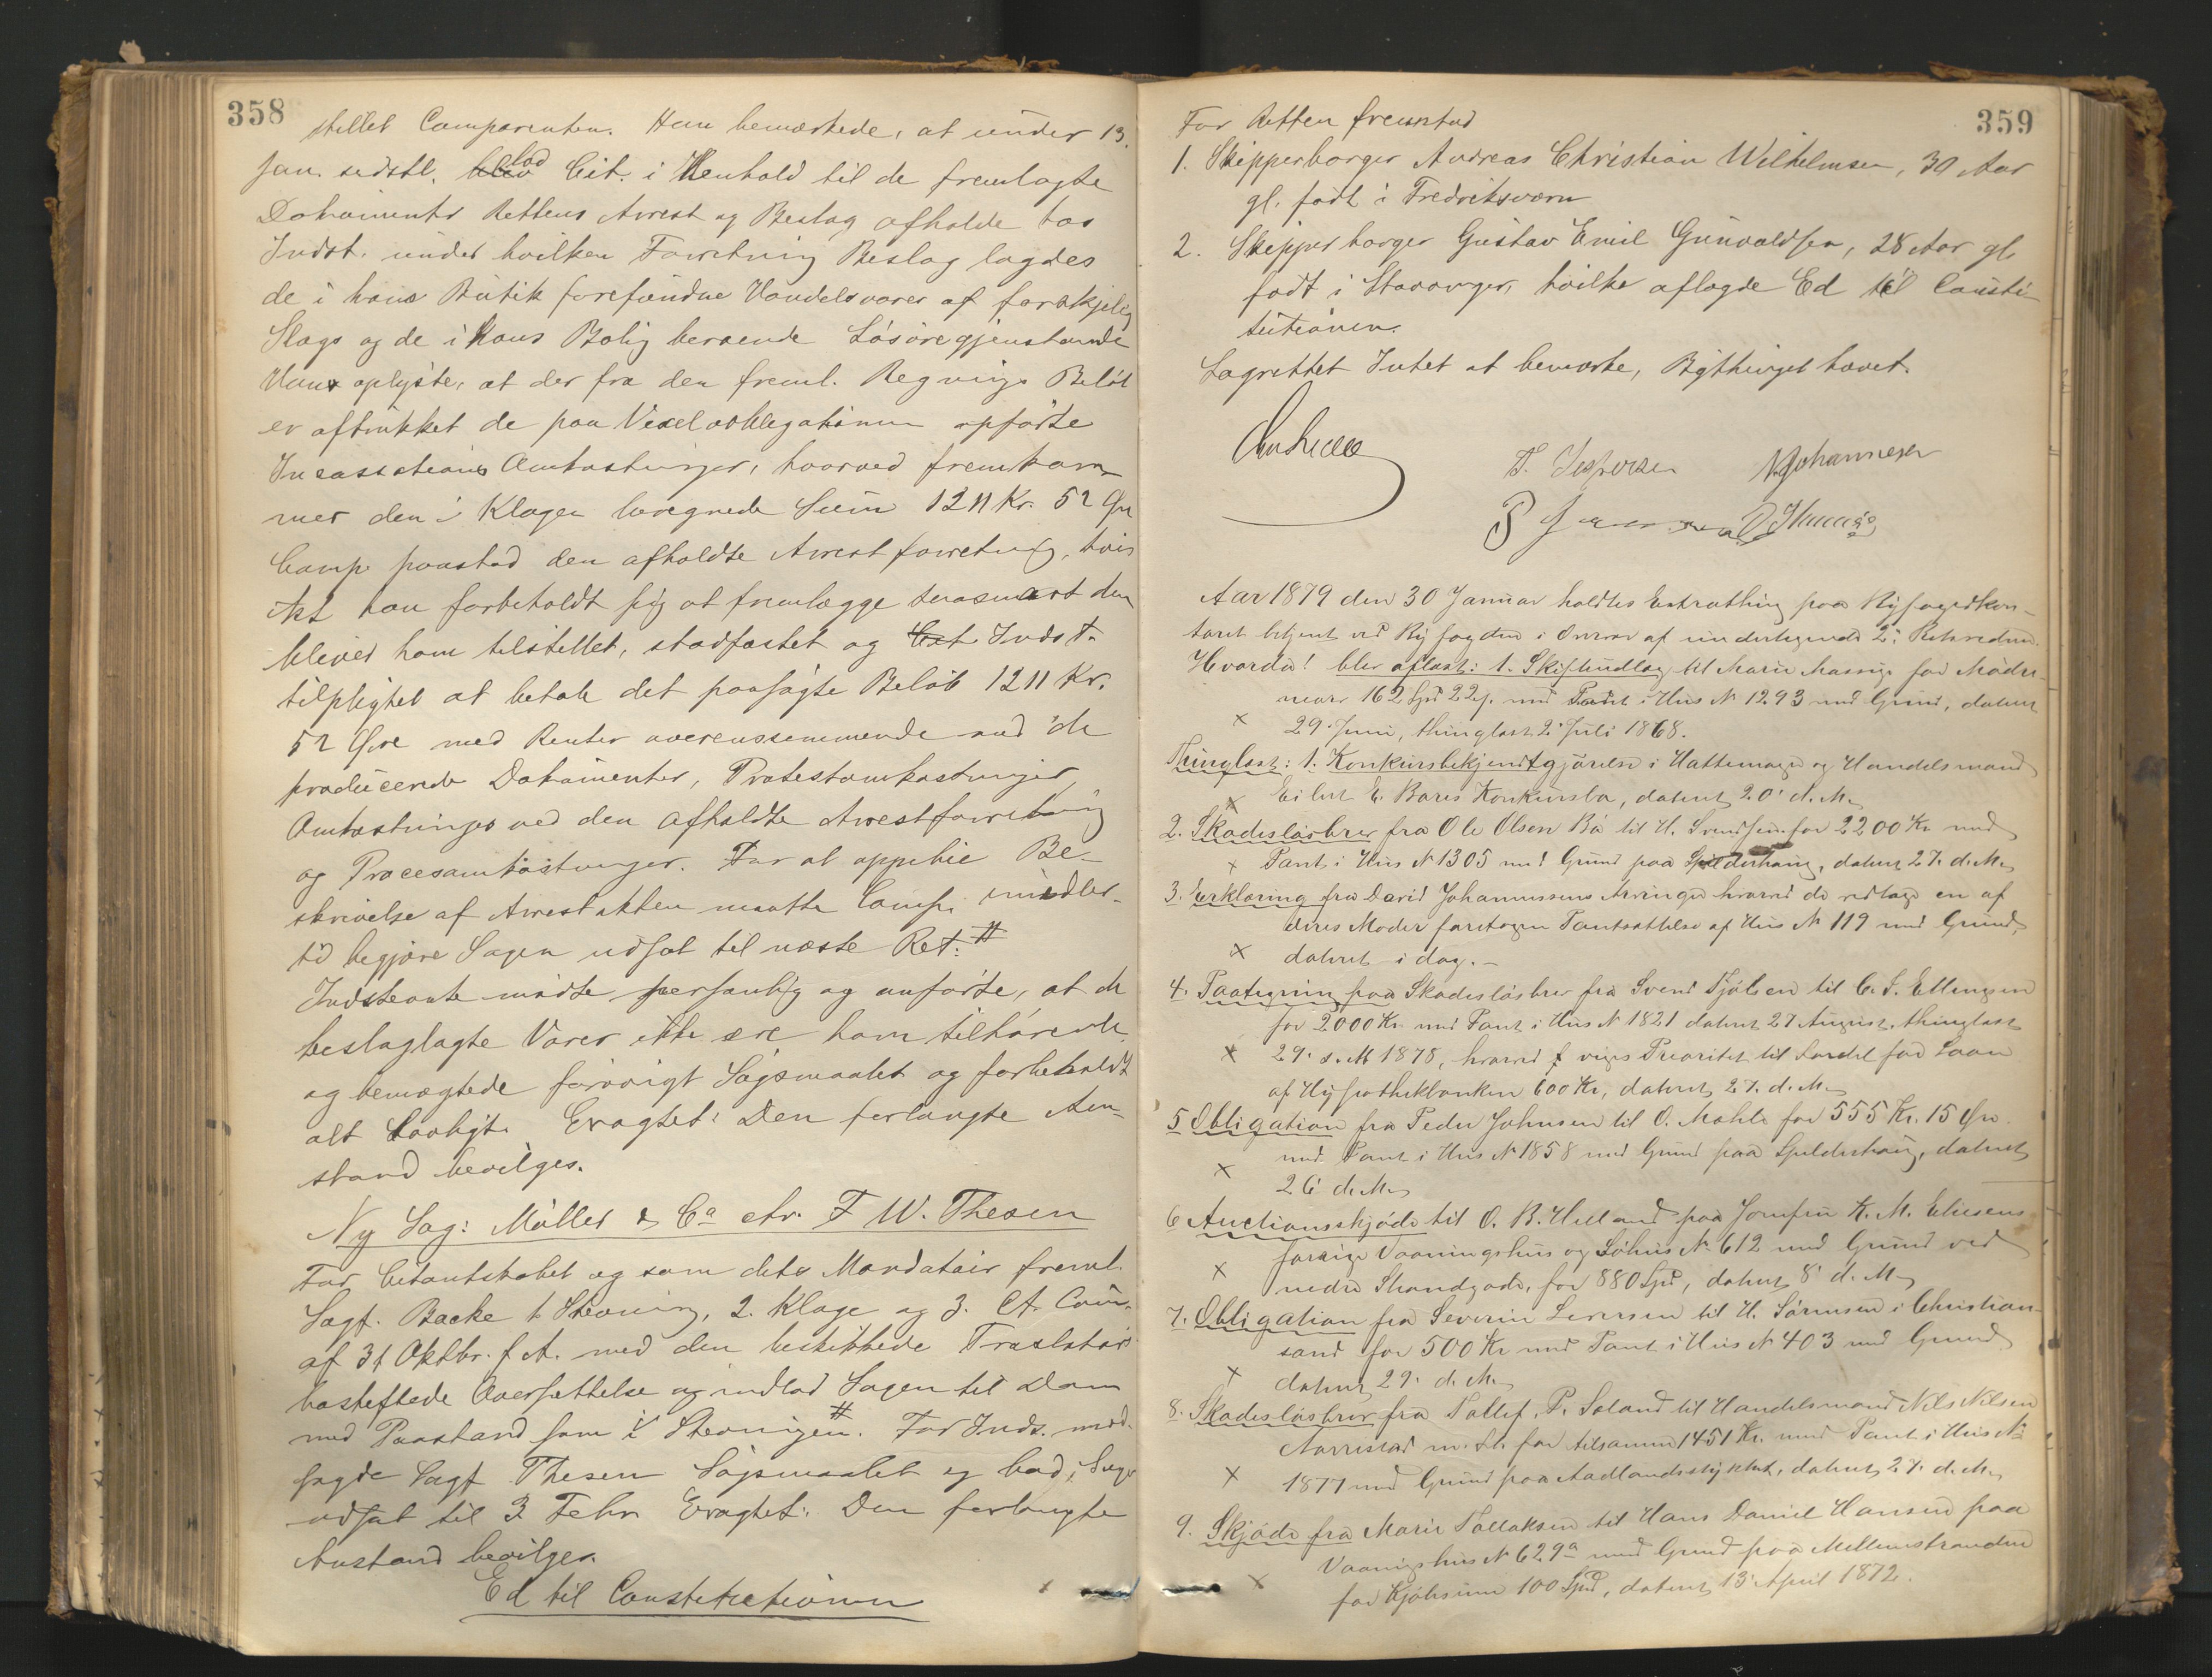 358
stillet Comparenten. Han bemærkede, at under 13.
Jan. sidstl. lod Cit. i Henhold til de fremlagte
Dokumenter Rettens Arrest og Beslag afholde hos
Indst. under hvilken Forretning Beslag lagdes
de i hans Butik forefundne Handelsvarer af forskjelig
Slags og de i hans Bolig beroende Løsøregjenstande
Hans oplyste, at der fra den freml. Regnings Beløb
er aftrukket de paa Vexelobligationen opførte
Incassations Omkostninger, hvorved fremkom-
mer den i Klagen beregnede Sum 1211 Kr. 52 Øre
Comp. paastod den afholdte Arrestforretning, hvis
Akt han forbeholdt sig at fremlægge saasnart den
blever ham tilstillet, stadfæstet og Indst.
tilpligtet at betale det paasagte Beløb 1211 Kr.
52 Øre med Renter overensstemmende med de
producerede Dokumenter, Protestomkostninger
Omkostninger ved den afholdte Arrestforretning
og Procesomkostninger. For at oppebie Be-
skrivelse af Arrestakten maatte Comp. imidler-
tid begjære Sagen udsat til næste Ret. #
Indstevnte mødte personlig og anførte, at de
beslaglagte Varer ikke ere ham tilhørende
og benægtede forøvrigt Søgsmaalet og forbeholdt
alt Lovligt. Eragtet: Den forlangte An-
stand bevilges.
Ny Sag: Møller & Co ctr. F W. Thesen
For Citantskabet og som dets Mandatair freml.
Sagf. Backe 1 Stevning, 2. Klage og 3. Ct. Cour.
af 31 Oktbr. f. A. med den beskikkede Translatørs
hosheftede Oversettelse og indlod Sagen til Dom
med Paastand som i Stevningen. # For Inds. mod-
sagde Sagf Thesen Søgsmaalet og bad Sagen
udsat til 3 Febr. Eragtet: Den forlangte
Anstand bevilges.
Ed til Constitutionen
359
For Retten fremstod
1. Skipperborger Andreas Christian Wilhelmsen, 30 Aar
gl. født i Fredriksværn
2. Skipperborger Gustav Emil Gunvaldsen, 28 Aar gl
født i Stavanger, hvilke aflagde Ed til Consti-
tutionen.
Lagrettet Intet at bemærke, Bythinget hævet.
T. Jespersen Johannesen
Aar 1879 den 30 Januar holdtes Extrathing paa Byfogedkon-
toret betjent ved Byfogden i Overvær af undertegnede 2de Retsvidner.
Hvorda: blev aflæst: 1. Skifteudlæg til Marie Massige for Mødre-
nearv 162 Spd 22 s. med Pant i Hus No 1293 med Grund, dateret
x 29. Juni, thinglæst 2. Juli 1868.
Thinglæst: 1. Konkursbekjendtgjørelse i Hattemager og Handelsmand
x Eilert E. Bores Konkursbo, dateret 20' d. M.
2. Skadesløsbrev fra Ole Olsen Bø til H. Svendsen for 2200 Kr med
x Pant i Hus No 1305 med Grund paa Spilderhaug, dateret 27. d. M.
3. Erklæring fra David Johannessens Arvinger hvorved de vedtage en af
deres Moder foretagen Pantsættelse af Hus No 119 med Grund,
x dateret i dag. -
4. Paategning paa Skadesløsbrev fra Svend Tjølsen til C. S. Ellingsen
for 2000 Kr. med Pant i Hus No 1821 dateret 27 August, thinglæst
x 29. s. M 1878, hvorved viges Prioritet til Fordel for Laan
af Hypothekbanken 600 Kr, dateret 27. d. M.
5 Obligation fra Peder Johnsen til O. Mahle for 555 Kr. 15 Øre
med Pant i Hus No 1858 med Grund paa Spilderhaug, dateret
x 26' d. M.
6 Auctionsskjøde til O. B. Helland paa Jomfru K. M. Eliesens
forrige Vaaningshus og Søhus No 612 med Grund ved
x nedre Strandgade, for 880 Spd, dateret 8' d. M.
7. Obligation fra Severin Sivertsen til H. Sørensen i Christian-
sand for 500 Kr med Pant i Hus No 403 med Grund
x dateret 29. d. M.
8. Skadesløsbrev fra Tollef. P. Soland til Handelsmand Nils Nilsen
Norrestad m. fl. for tilsammen 1451 Kr. med Pant i Hus No
x 1877 med Grund paa Aadlandsstykket, dateret 27. d. M.
9. Skjøde fra Marie Tollaksen til Hans Daniel Hansen paa
Vaaningshus No 629a med Grund paa Mellemstranden
x for Kjøbesum 100 Spd, dateret 13' April 1872.